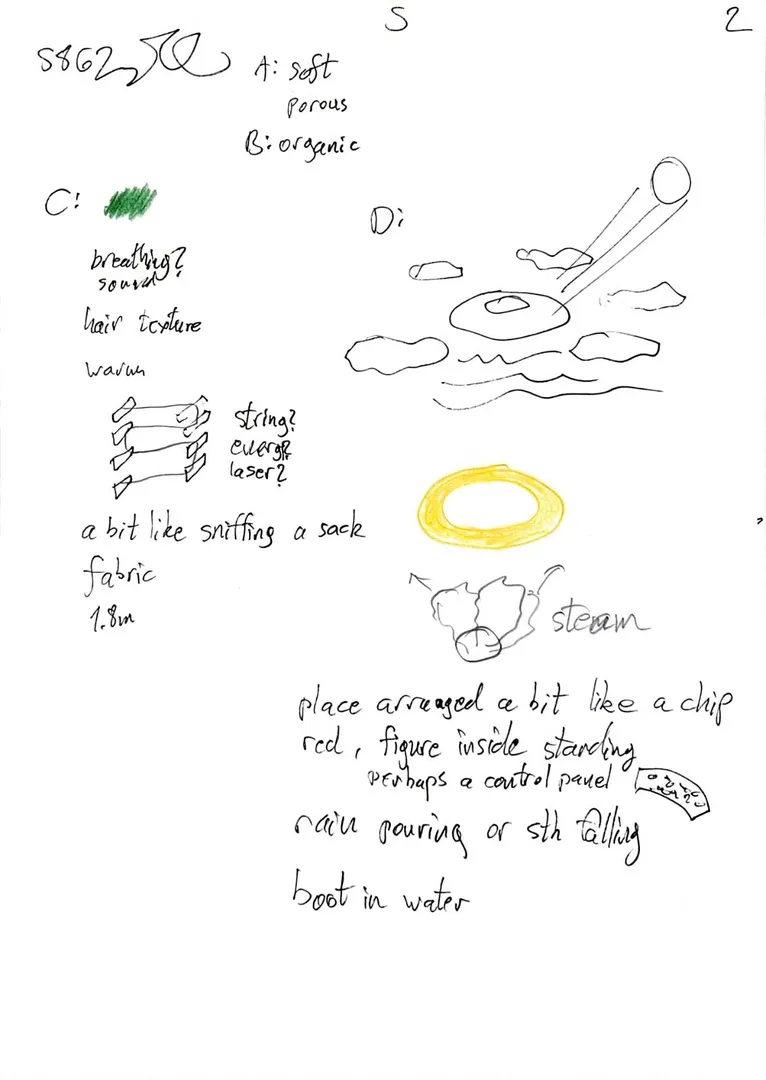 S 2
S862
A: soft
porous
B: organic
C:
D:
breathing?
sound
hair texture
warm
string?
energ?
laser?
a bit like sniffing a sack
fabric
1.8m
steam
place arranged a bit like a chip
red, figure inside standing
perhaps a control panel
rain pouring or sth falling
boot in water